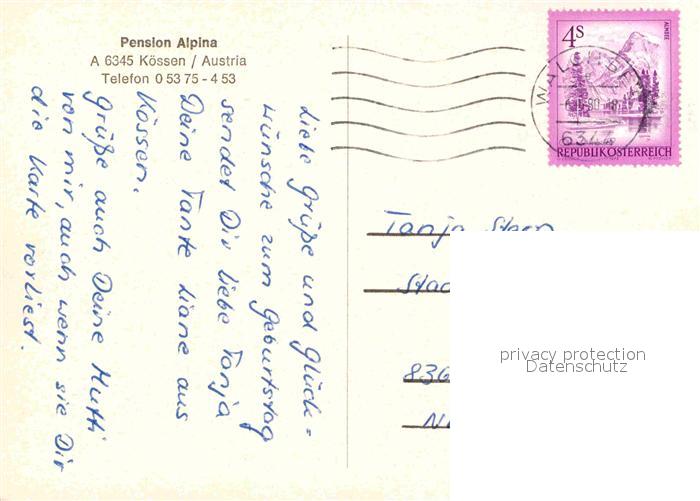 Pension Alpina
A 6345 Kössen / Austria
Telefon 0 53 75 - 4 53
Liebe Grüße und Glück=
wünsche zum Geburtstag
sendet Dir liebe Tanja
Deine Tante Liane aus
Kössen.
Grüße auch Deine Mutti
von mir, auch wenn sie Dir
die Karte vorliest.
4S
ALMSEE
REPUBLIK ÖSTERREICH
WALCHSEE
80
6344
Tanja
836
privacy protection
Datenschutz